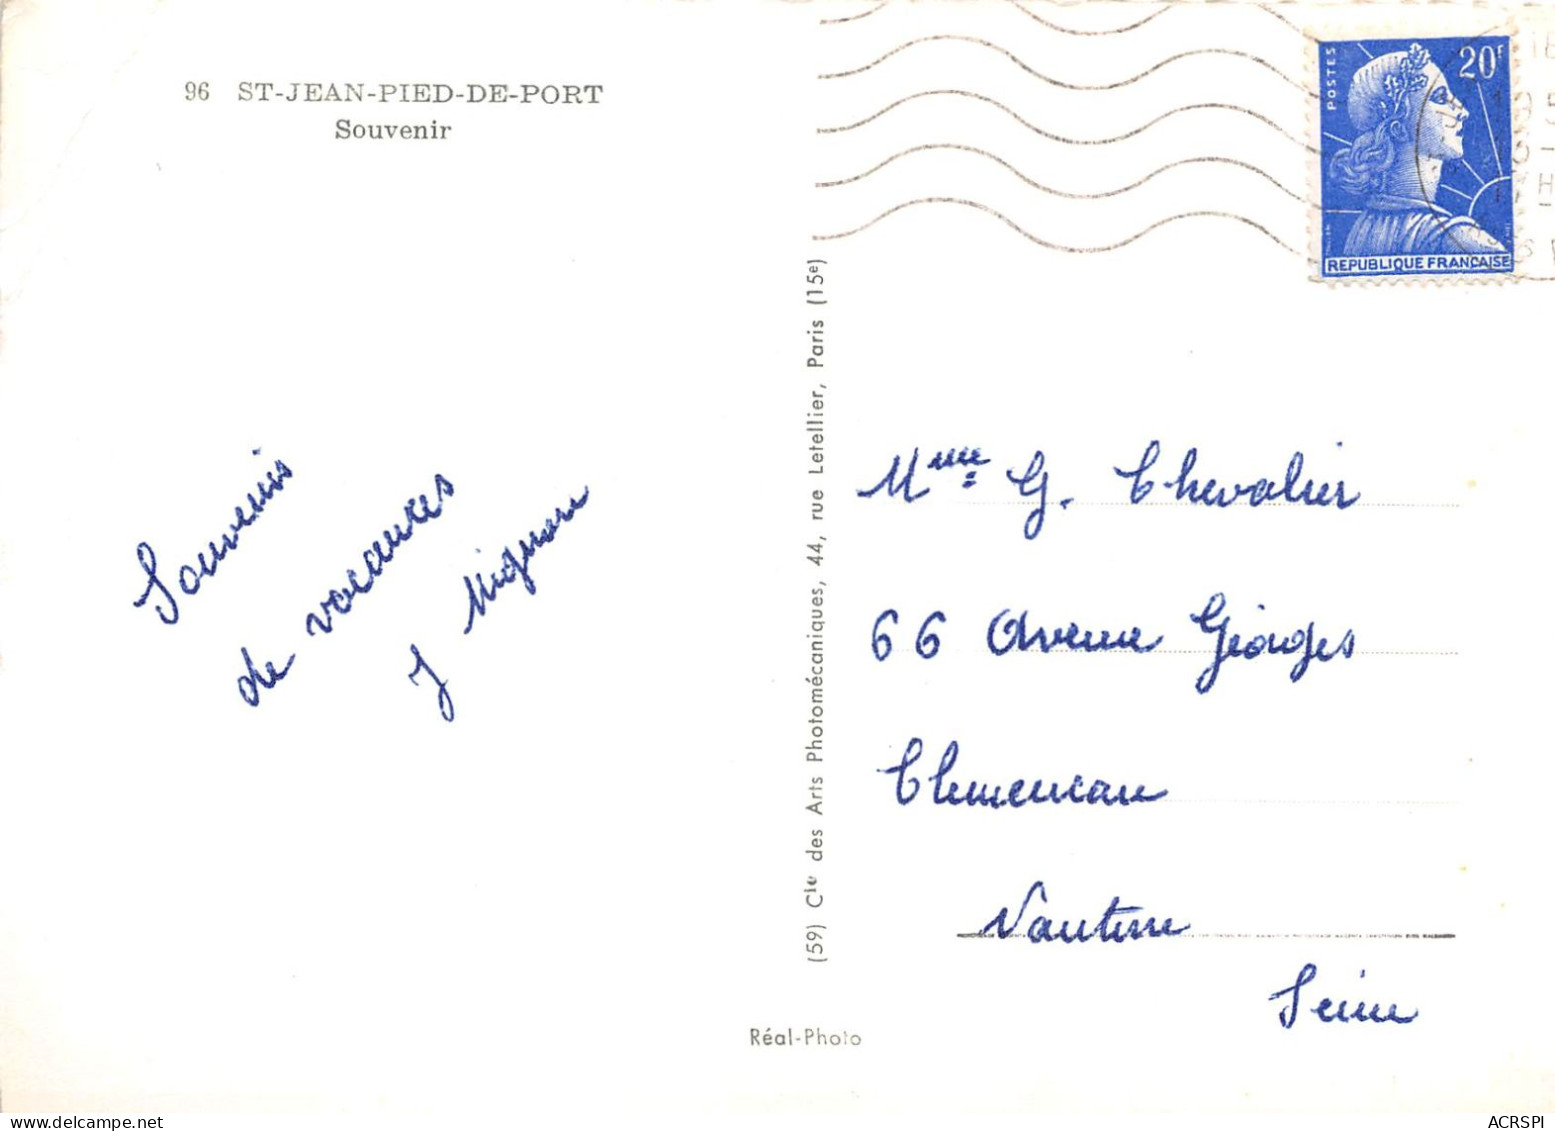 96 ST-JEAN-PIED-DE-PORT
Souvenir
POSTES
20F
REPUBLIQUE FRANÇAISE
Souvenirs
de vacances
J Mignon
(59) Cie des Arts Photomécaniques, 44, rue Letellier, Paris (15e)
Mme G. Chevalier
66 Avenue Georges
Clemenceau
Nanterre
Seine
Réal-Photo
ACRSPI